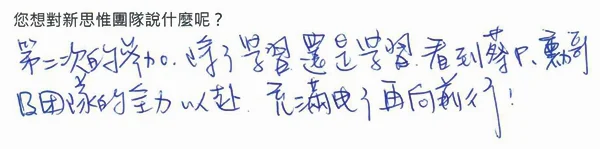 您想對新思惟團隊說什麼呢？
第二次的參加。除了學習還是學習.看到蔡P、勳哥
及團隊的全力以赴.充滿电了再向前行！